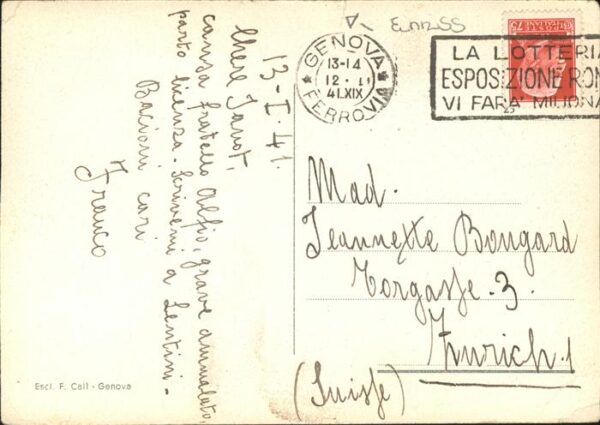 13-I-41.
Chere Janot,
causa fratello Alfio, grave ammalato,
parto licenza. Scrivemi a Lentini.
Bacioni cari
Franco
Escl. F. Cali - Genova
GENOVA
13-14
12 . I
41.XIX
FERROVIA
LA LOTTERIA
ESPOSIZIONE ROM
VI FARÀ MILIONA
POSTE ITALIANE
75
Mad.
Jeannette Bongard
Torgasse. 3.
Zurich. 1
(Suisse)